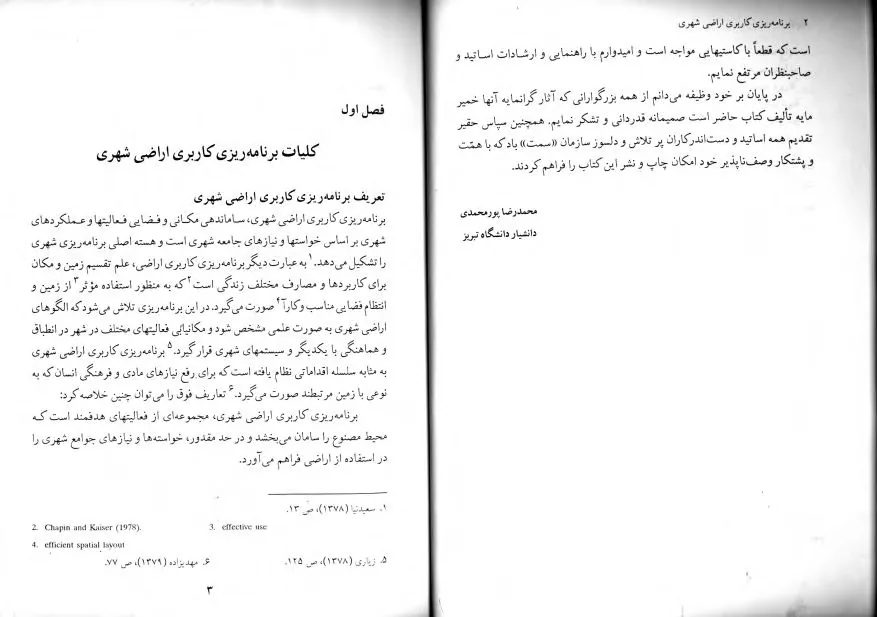 ۲ برنامه‌ریزی کاربری اراضی شهری
است که قطعاً با کاستیهایی مواجه است و امیدوارم با راهنمایی و ارشادات اساتید و
صاحبنظران مرتفع نمایم.
در پایان بر خود وظیفه می‌دانم از همه بزرگوارانی که آثار گرانمایه آنها خمیر
مایه تألیف کتاب حاضر است صمیمانه قدردانی و تشکر نمایم. همچنین سپاس حقیر
تقدیم همه اساتید و دست‌اندرکاران پر تلاش و دلسوز سازمان «سمت» باد که با همّت
و پشتکار وصف‌ناپذیر خود امکان چاپ و نشر این کتاب را فراهم کردند.
محمدرضا پورمحمدی
دانشیار دانشگاه تبریز
فصل اول
کلیات برنامه‌ریزی کاربری اراضی شهری
تعریف برنامه‌ریزی کاربری اراضی شهری
برنامه‌ریزی کاربری اراضی شهری، ساماندهی مکانی و فضایی فعالیتها و عملکردهای
شهری بر اساس خواستها و نیازهای جامعه شهری است و هسته اصلی برنامه‌ریزی شهری
را تشکیل می‌دهد.۱ به عبارت دیگر برنامه‌ریزی کاربری اراضی، علم تقسیم زمین و مکان
برای کاربردها و مصارف مختلف زندگی است۲ که به منظور استفاده مؤثر۳ از زمین و
انتظام فضایی مناسب و کارآ۴ صورت می‌گیرد. در این برنامه‌ریزی تلاش می‌شود که الگوهای
اراضی شهری به صورت علمی مشخص شود و مکانیابی فعالیتهای مختلف در شهر در انطباق
و هماهنگی با یکدیگر و سیستمهای شهری قرار گیرد.۵ برنامه‌ریزی کاربری اراضی شهری
به مثابه سلسله اقداماتی نظام یافته است که برای رفع نیازهای مادی و فرهنگی انسان که به
نوعی با زمین مرتبطند صورت می‌گیرد.۶ تعاریف فوق را می‌توان چنین خلاصه کرد:
برنامه‌ریزی کاربری اراضی شهری، مجموعه‌ای از فعالیتهای هدفمند است که
محیط مصنوع را سامان می‌بخشد و در حد مقدور، خواسته‌ها و نیازهای جوامع شهری را
در استفاده از اراضی فراهم می‌آورد.
۱. سعیدنیا (۱۳۷۸)، ص ۱۳.
2. Chapin and Kaiser (1978). 3. effective use
4. efficient spatial layout
۵. زیاری (۱۳۷۸)، ص ۱۲۵. ۶. مهدیزاده (۱۳۷۹)، ص ۷۷.
۳